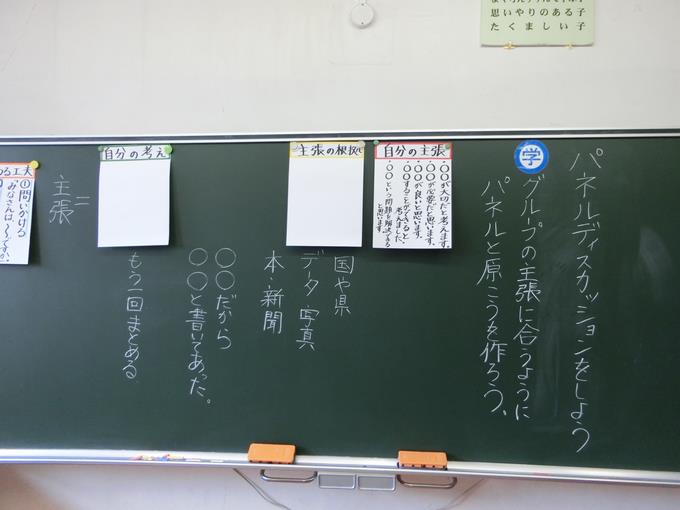 思いやりのある子
たくましい子
パネルディスカッションをしよう
学
グループの主張に合うように
パネルと原こうを作ろう。
自分の主張
・〇〇が大切だと考えます。
・〇〇が必要だと思います。
・〇〇が良いと思います。
・〇〇することができると
考えました。
・〇〇という問題を解決できる
と思います。
主張の根拠
国や県
データ・写真
本・新聞
〇〇だから
〇〇と書いてあった。
自分の考え
もう一回まとめる
=
主張
る工夫
①問いかける
「みなさんは〜ですか。